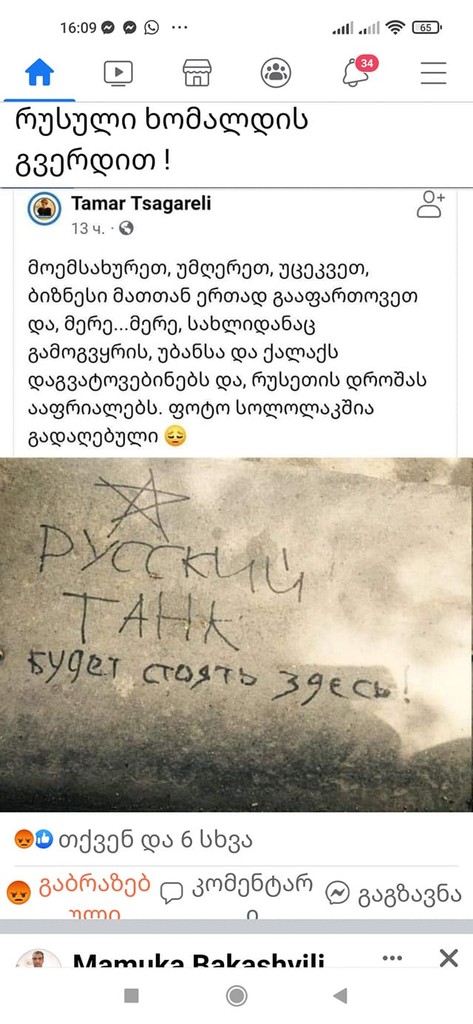 16:09
65
34
რუსული ხომალდის
გვერდით !
Tamar Tsagareli
13 ч.
მოემსახურეთ, უმღერეთ, უცეკვეთ,
ბიზნესი მათთან ერთად გააფართოვეთ
და, მერე...მერე, სახლიდანაც
გამოგვყრის, უბანსა და ქალაქს
დაგვატოვებინებს და, რუსეთის დროშას
ააფრიალებს. ფოტო სოლოლაკშია
გადაღებული 😔
РУССКИЙ
ТАНК
будет стоять здесь!
თქვენ და 6 სხვა
გაბრაზებ
ული
კომენტარ
ი
გაგზავნა
Mamuka Bakashvili